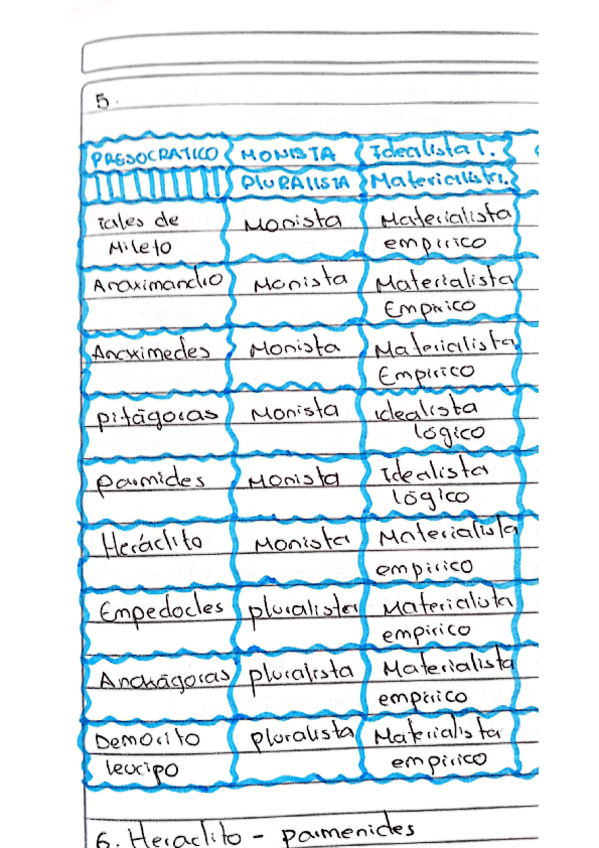 5.
PRESOCRATICO MONISTA Idealista l.
PLURALISTA Materialisti.
Tales de Monista Materialista
Mileto empirico
Anaximandro Monista Materialista
Empirico
Anaximedes Monista Materialista
Empirico
pitágoras Monista idealista
lógico
parmides Monista Idealista
lógico
Heráclito Monista Materialista
empirico
Empedocles pluralista Materialista
empirico
Anaxágoras pluralista Materialista
empirico
Demorito pluralista Materialista
leucipo empirico
6. Heraclito - parmenides